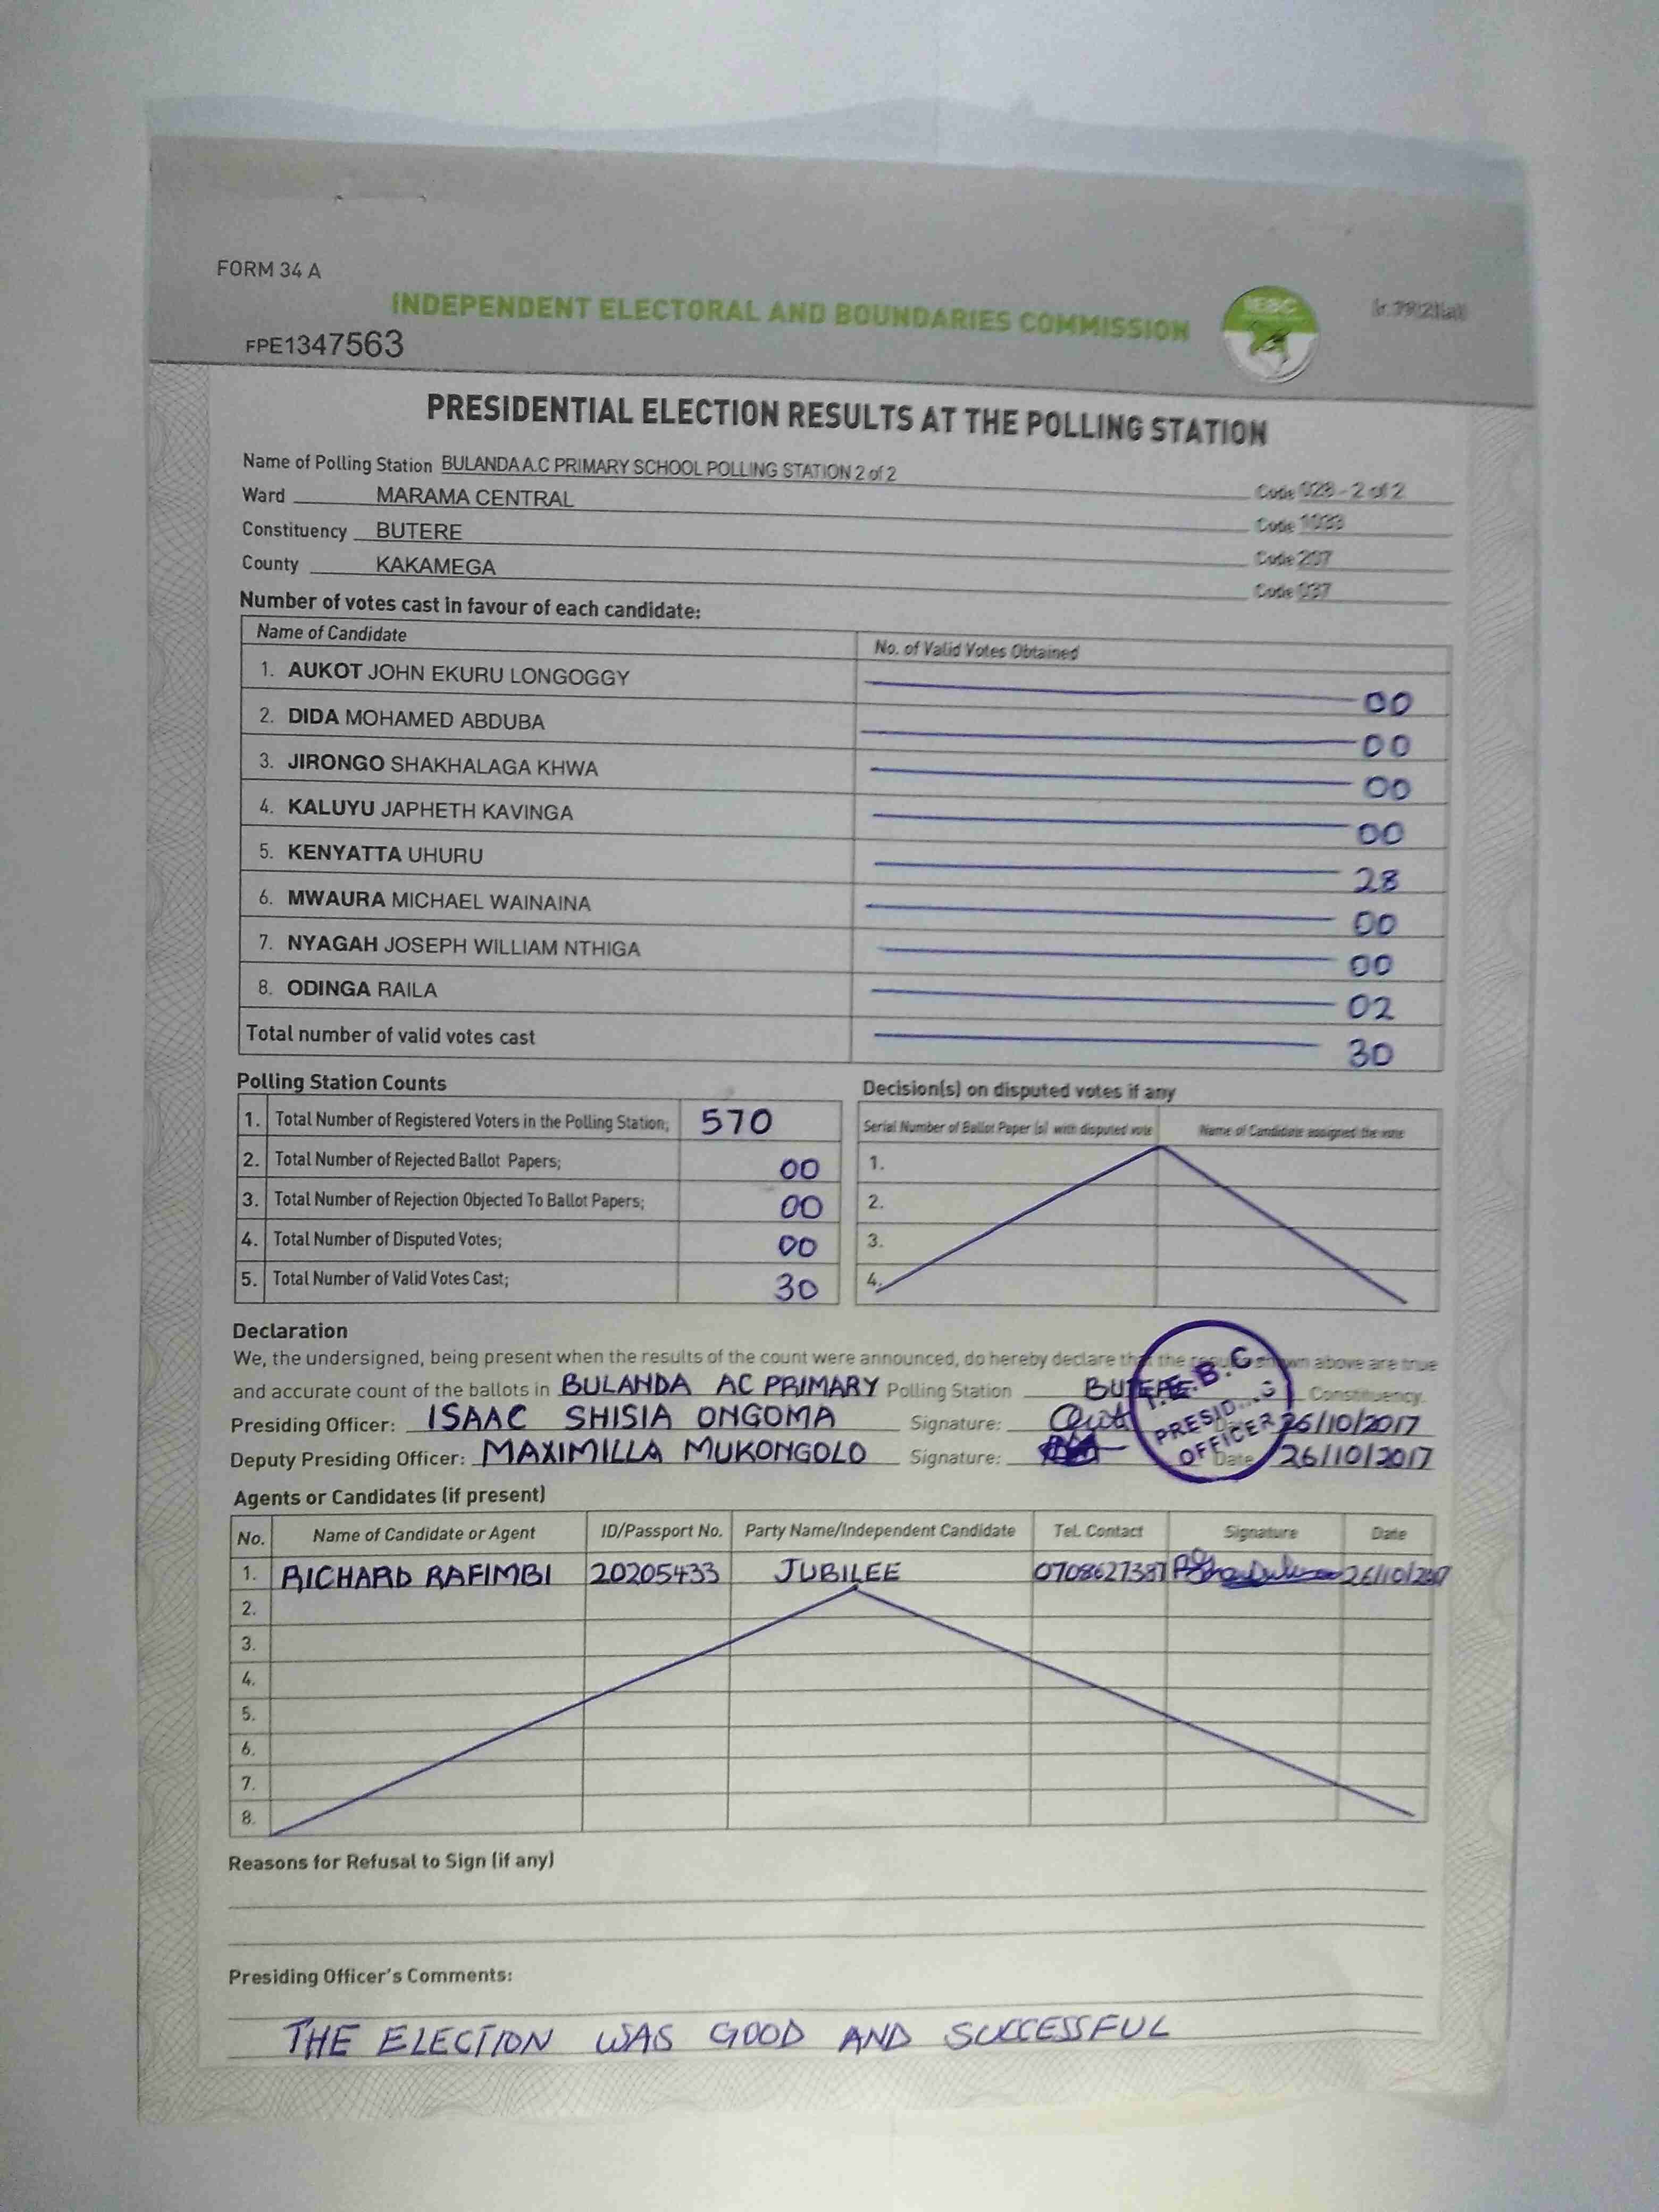 FORM 34 A
INDEPENDENT ELECTORAL AND BOUNDARIES COMMISSION
IEBC
FPE1347563
PRESIDENTIAL ELECTION RESULTS AT THE POLLING STATION
Name of Polling Station BULANDA A.C PRIMARY SCHOOL POLLING STATION 2 of 2 Code 028 - 2 of 2
Ward MARAMA CENTRAL Code 1033
Constituency BUTERE Code 207
County KAKAMEGA Code 037
Number of votes cast in favour of each candidate:
Name of Candidate No. of Valid Votes Obtained
1. AUKOT JOHN EKURU LONGOGGY 00
2. DIDA MOHAMED ABDUBA 00
3. JIRONGO SHAKHALAGA KHWA 00
4. KALUYU JAPHETH KAVINGA 00
5. KENYATTA UHURU 28
6. MWAURA MICHAEL WAINAINA 00
7. NYAGAH JOSEPH WILLIAM NTHIGA 00
8. ODINGA RAILA 02
Total number of valid votes cast 30
Polling Station Counts
1. Total Number of Registered Voters in the Polling Station; 570
2. Total Number of Rejected Ballot Papers; 00
3. Total Number of Rejection Objected To Ballot Papers; 00
4. Total Number of Disputed Votes; 00
5. Total Number of Valid Votes Cast; 30
Decision(s) on disputed votes if any
Serial Number of Ballot Paper (s) with disputed vote Name of Candidate assigned the vote
1.
2.
3.
4.
Declaration
We, the undersigned, being present when the results of the count were announced, do hereby declare that the results shown above are true
and accurate count of the ballots in BULANDA AC PRIMARY Polling Station BUTERE Constituency.
Presiding Officer: ISAAC SHISIA ONGOMA Signature: 26/10/2017
Deputy Presiding Officer: MAXIMILLA MUKONGOLO Signature: Date 26/10/2017
I.E.B.C
OFFICER
Agents or Candidates (if present)
No. Name of Candidate or Agent ID/Passport No. Party Name/Independent Candidate Tel. Contact Signature Date
1. RICHARD RAFIMBI 20205433 JUBILEE 0708627387 26/10/2017
2.
3.
4.
5.
6.
7.
8.
Reasons for Refusal to Sign (if any)
Presiding Officer's Comments:
THE ELECTION WAS GOOD AND SUCCESSFUL